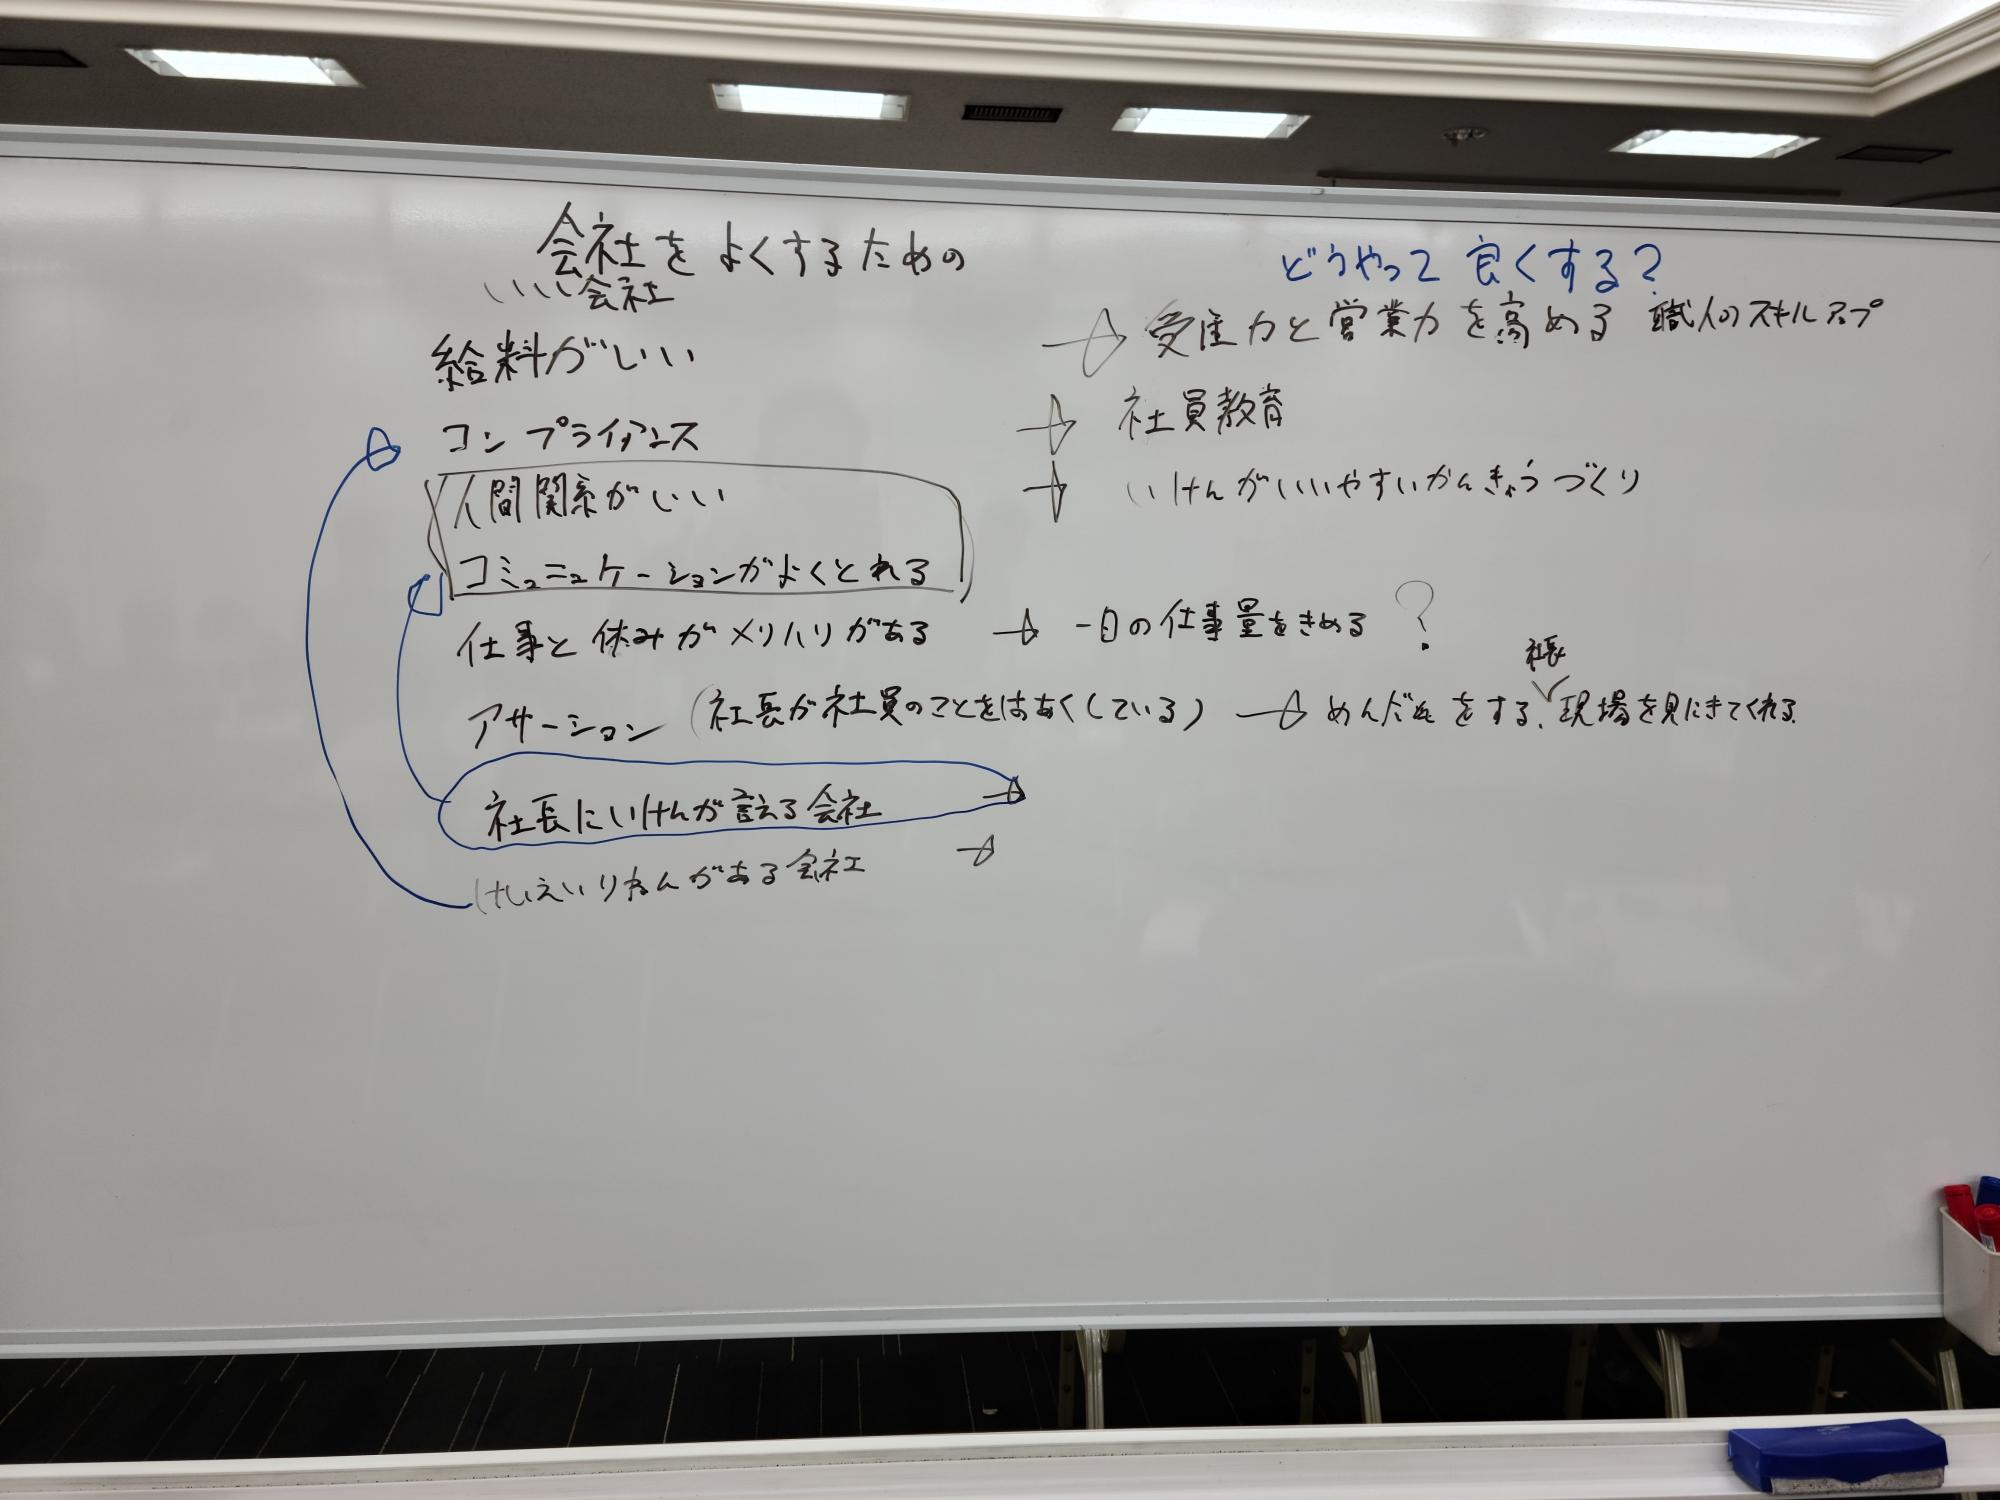 会社をよくするための
いい会社
どうやって良くする?
給料がいい
→ 受注力と営業力を高める 職人のスキルアップ
コンプライアンス
→ 社員教育
人間関係がいい
→ いけんがいいやすいかんきょうづくり
コミュニケーションがよくとれる
仕事と休みがメリハリがある → 一日の仕事量をきめる ?
アサーション (社長が社員のことをはあくしている) → めんだんをする、社長現場を見にきてくれる
社長にいけんが言える会社 →
けいえいりねんがある会社 →